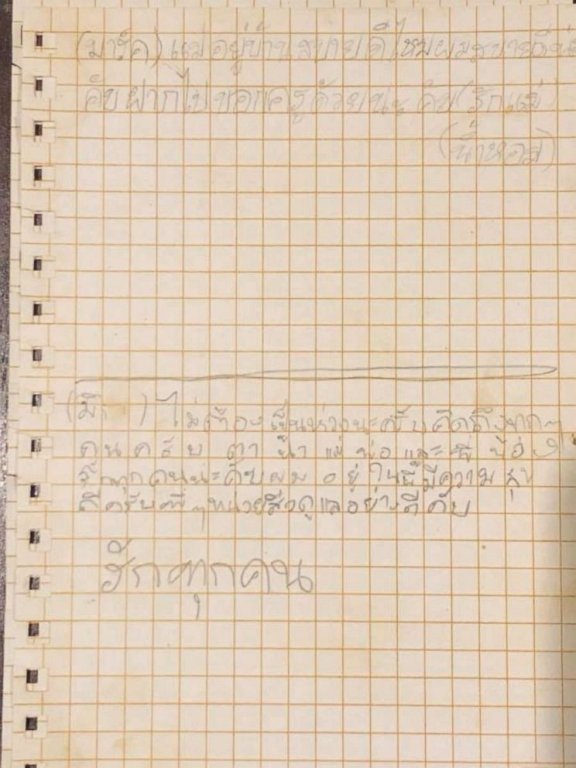 (มาร์ค) แม่อยู่บ้านสบายดีไหมผมสบายดี
คับฝากไปบอกครูด้วยนะคับ(รักแม่)
(น้ำหอม)
(มิ ) ไม่ต้องเป็นห่วงนะครับคิดถึงทุกๆ
คนครับ ตา น้า แม่ พ่อ และ พี่ น้อง
รักทุกคนนะคับผมอยู่ในนี้มีความสุข
ดีครับพี่ๆหน่วยซีลดูแลอย่างดีคับ
รักทุกคน